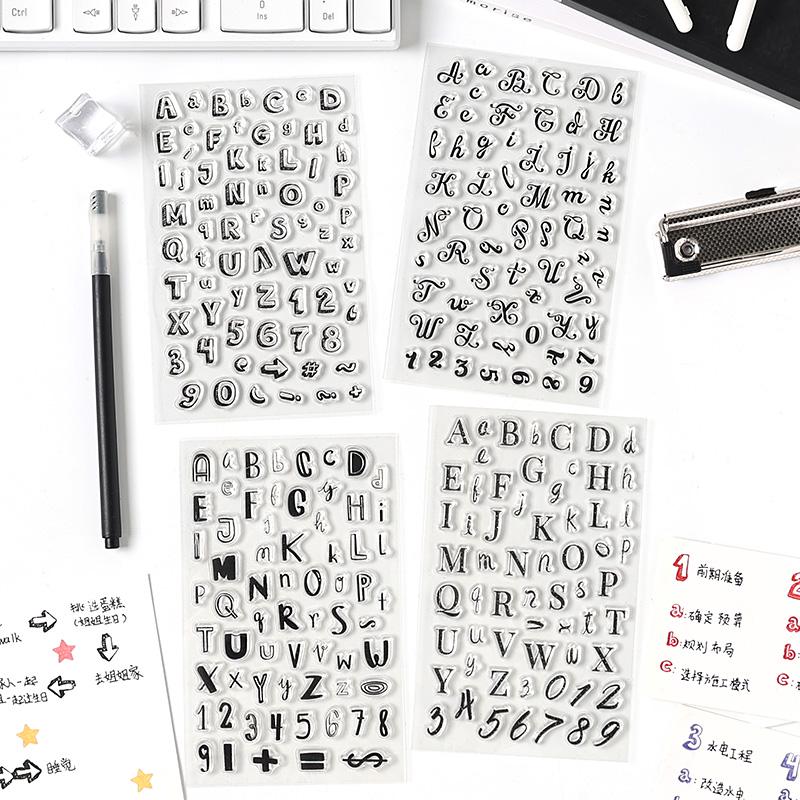 Ctrl
0
Ins
.
Del
morise
A a B b C c D
E e F f G g H d
I j J K k L l h
M m N n O P
Q q R r S s o p
T t U V W z x
X u y Y Z 1 2 v
3 4 5 6 7 8 c
→ # ~
9 0 ( ! ~ +
A a B C D b
E e c F G d H
f h g i I J j h
K L l M m n
N O c P p Q
s R q S t U
T w X
W Z 0 Y y
1 2 3 5 6 8 7 9
A a B b C c D d
E e F f G g y H i
I J j h K k L l
M m N n O o P p
P Q q R r S s t
T U u V v W w
X x Y y Z z
1 2 3 4 5 6 7 8
9 1 + = $
A a B b C c D d
E e F f G g H h
I i J j K k L l
M m N n O o P p
Q q R r S s t T
U u V v W w X x
Y y Z z 3 0 1 2
3 4 5 6 7 8 9
挑选蛋糕
(姐姐生日)
walk
去姐姐家
家人一起
一起过生日
睡觉
1 前期准备
a:确定预算
b:规划布局
c:选择施工模式
2
a:
b:
c:
3 水电工程
a:改造水电
4
a: